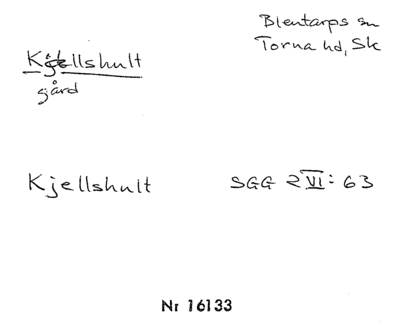 Blentarps sn
Torna hd, Sk
Kjellshult
gård
Kjellshult SGG 2 VI: 63
Nr 16133